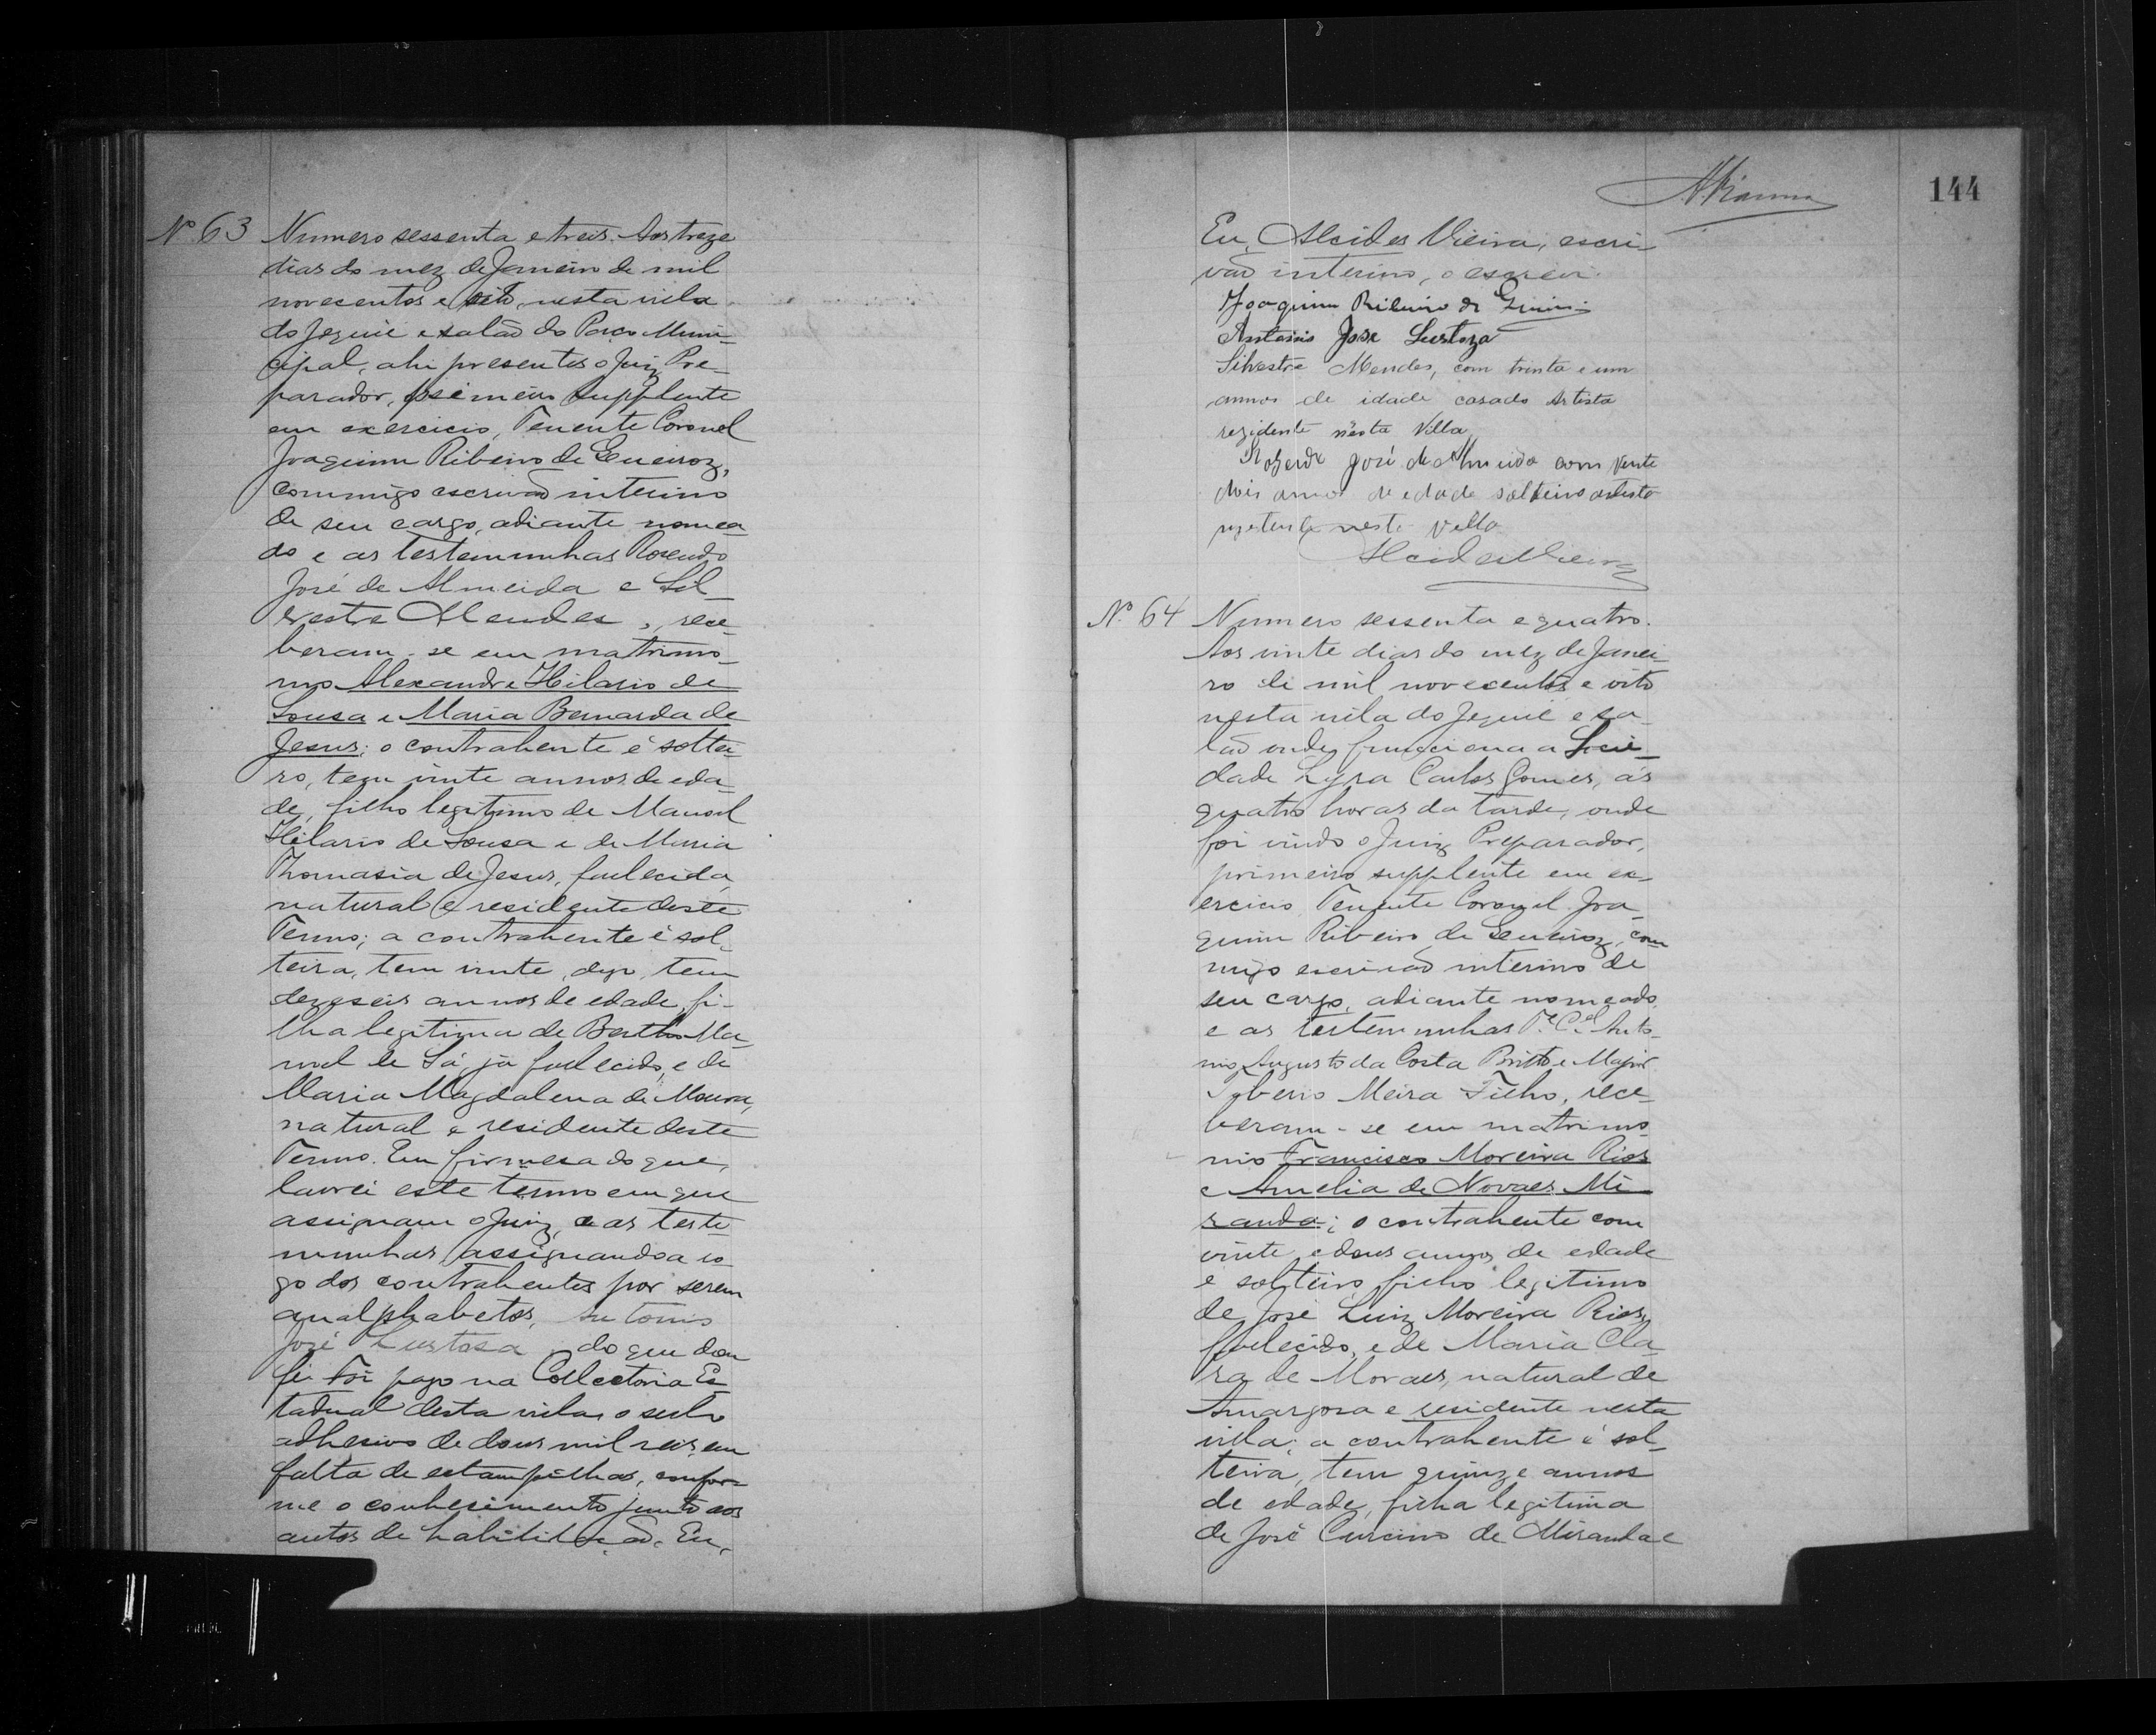 Nº 63 Numero sessenta e treis. Aos treze
dias do mez de Janeiro de mil
novecentos e oito, nesta villa
do Jequié e salão do Paço Muni-
cipal, ahi presentes o Juiz Pre-
parador, primeiro supplente
em exercicio, Tenente Coronel
Joaquim Ribeiro de Queiroz,
commigo escrivão interino
de seu cargo, adiante nomea
do e as testemunhas Rosendo
José de Almeida e Sil-
vestre Mendes, rece-
beram-se em matrimo-
nio Alexandre Hilario de
Sousa e Maria Bernarda de
Jesus; o contrahente é soltei-
ro, tem vinte annos de eda-
de, filho legitimo de Manoel
Hilario de Sousa e de Maria
Thomasia de Jesus, fallecida,
natural e residente deste
Termo; a contrahente é sol-
teira, tem vinte, digo, tem
dezeseis annos de edade, fi-
lha legitima de Ma-
noel de Sá, já fallecido, e de
Maria Magdalena de Moura,
natural e residente deste
Termo. Em firmesa do que,
lavrei este termo em que
assignam o Juiz, e as teste
munhas, assignando a ro-
go dos contrahentes por serem
analphabetos, Antonio
José Lustosa, do que dou
fé. Foi pago na Collectoria Es-
tadual desta villa, o sello
adhesivo de dous mil reis, em
falta de estampilhas, confor-
me o conhecimento junto aos
autos de habilitação. Eu,
144
Eu, Alcides Vieira, escri-
vão interino, o escrevi.
Joaquim Ribeiro de
Antonio Jose Lustoza
Silvestre Mendes, com trinta e um
annos de idade casado Artista
rezidente nesta Villa
José de Almeida com vente
dois annos de edade solteiro artista
nesta Villa
Alcides Vieira
Nº 64 Numero sessenta e quatro.
Aos vinte dias do mez de Janei-
ro de mil novecentos e oito
nesta villa do Jequié e sa-
lão onde funcciona a Socie-
dade Lyra Carlos Gomes, ás
quatro horas da tarde, onde
foi vindo o Juiz Preparador,
primeiro supplente em ex-
ercicio Tenente Coronel Joa-
quim Ribeiro de Queiroz, com
migo escrivão interino de
seu cargo, adiante nomeado,
e as testemunhas Te. Cel. Anto-
nio Augusto da Costa Britto e Major
Meira Filho, rece-
beram-se em matrimo-
nio Francisco Moreira Rios
e Amelia de Novaes Mi-
randa; o contrahente com
vinte e dous annos de edade
e solteiro, filho legitimo
de José Luiz Moreira Rios,
fallecido, e de Maria Cla-
ra de Moraes, natural de
Amargosa e residente nesta
villa; a contrahente é sol-
teira, tem quinze annos
de edade, filha legitima
de José Curcino de Miranda e